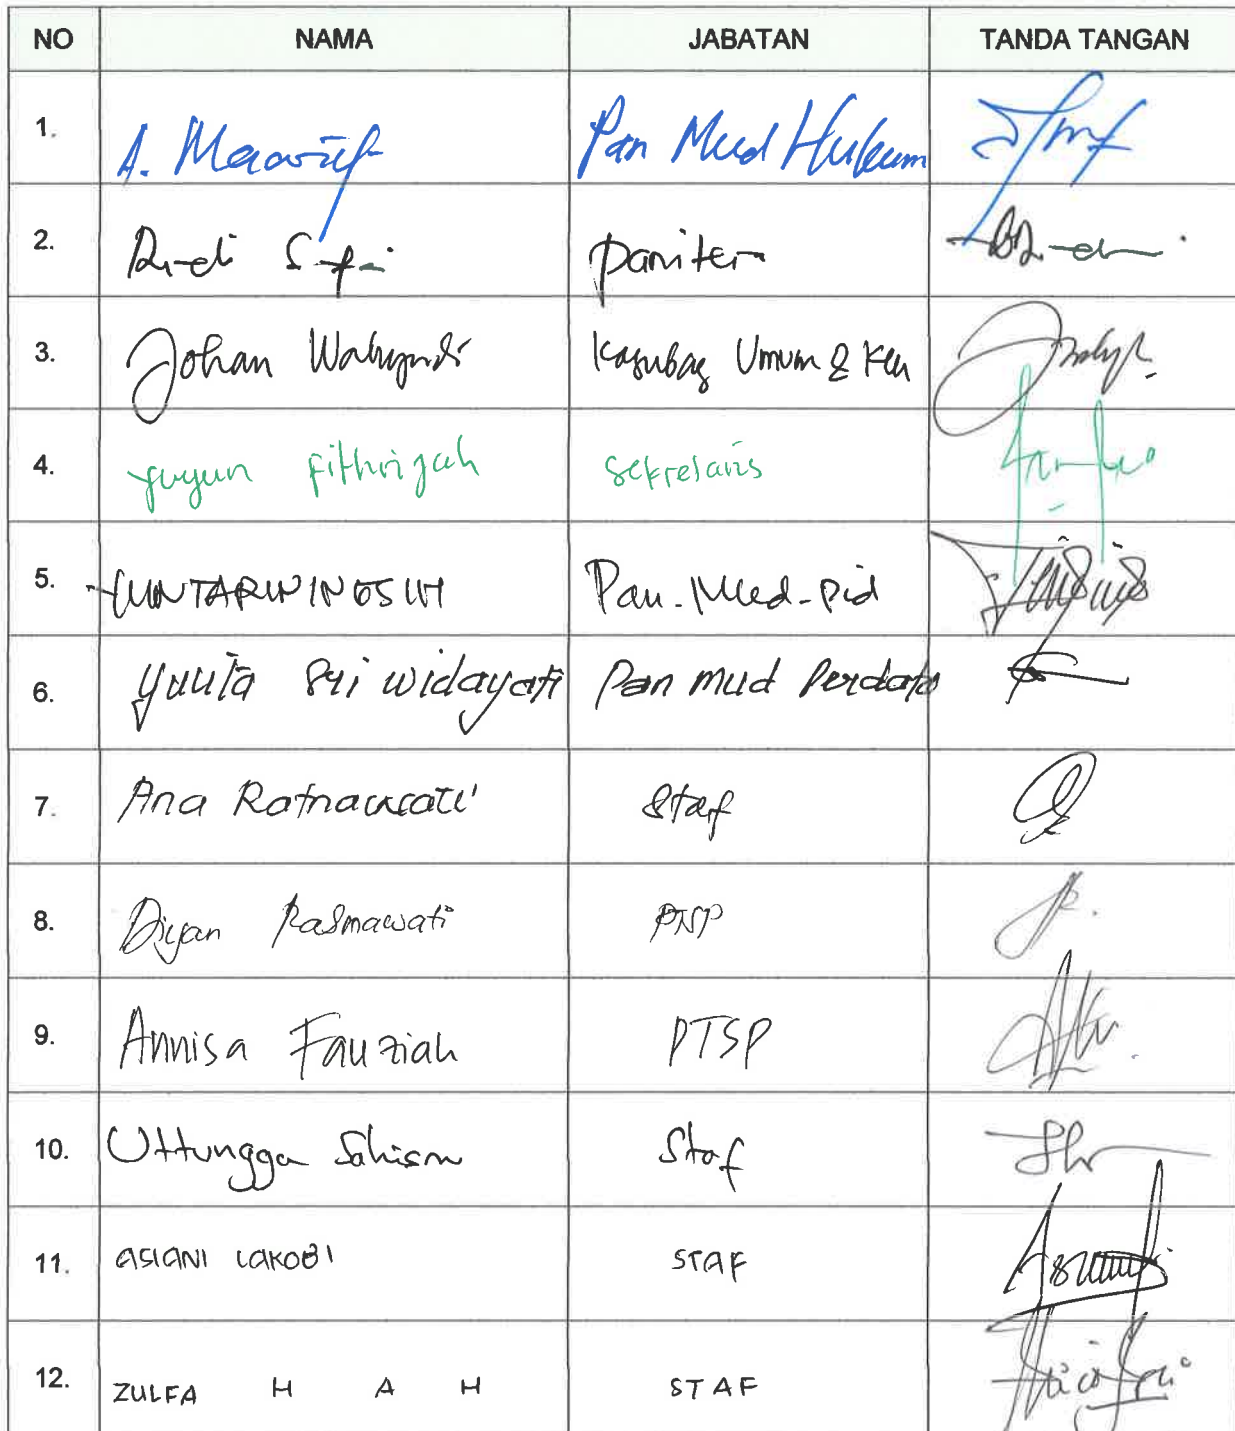 NO NAMA JABATAN TANDA TANGAN
1. A. Maarif Pan Mud Hukum
2. Panitera
3. Johan Wahyudi Kasubag Umum & Keu
4. Yuyun Fithrijah Sekretaris
5. Pan. Mud. Pid
6. Yunita Sri Widayati Pan Mud Perdata
7. Ana Ratnawati Staf
8. Diyan Rasmawati PTSP
9. Annisa Fauziah PTSP
10. Uttungga Staf
11. ASIANI LAKOBI STAF
12. ZULFA H A H STAF